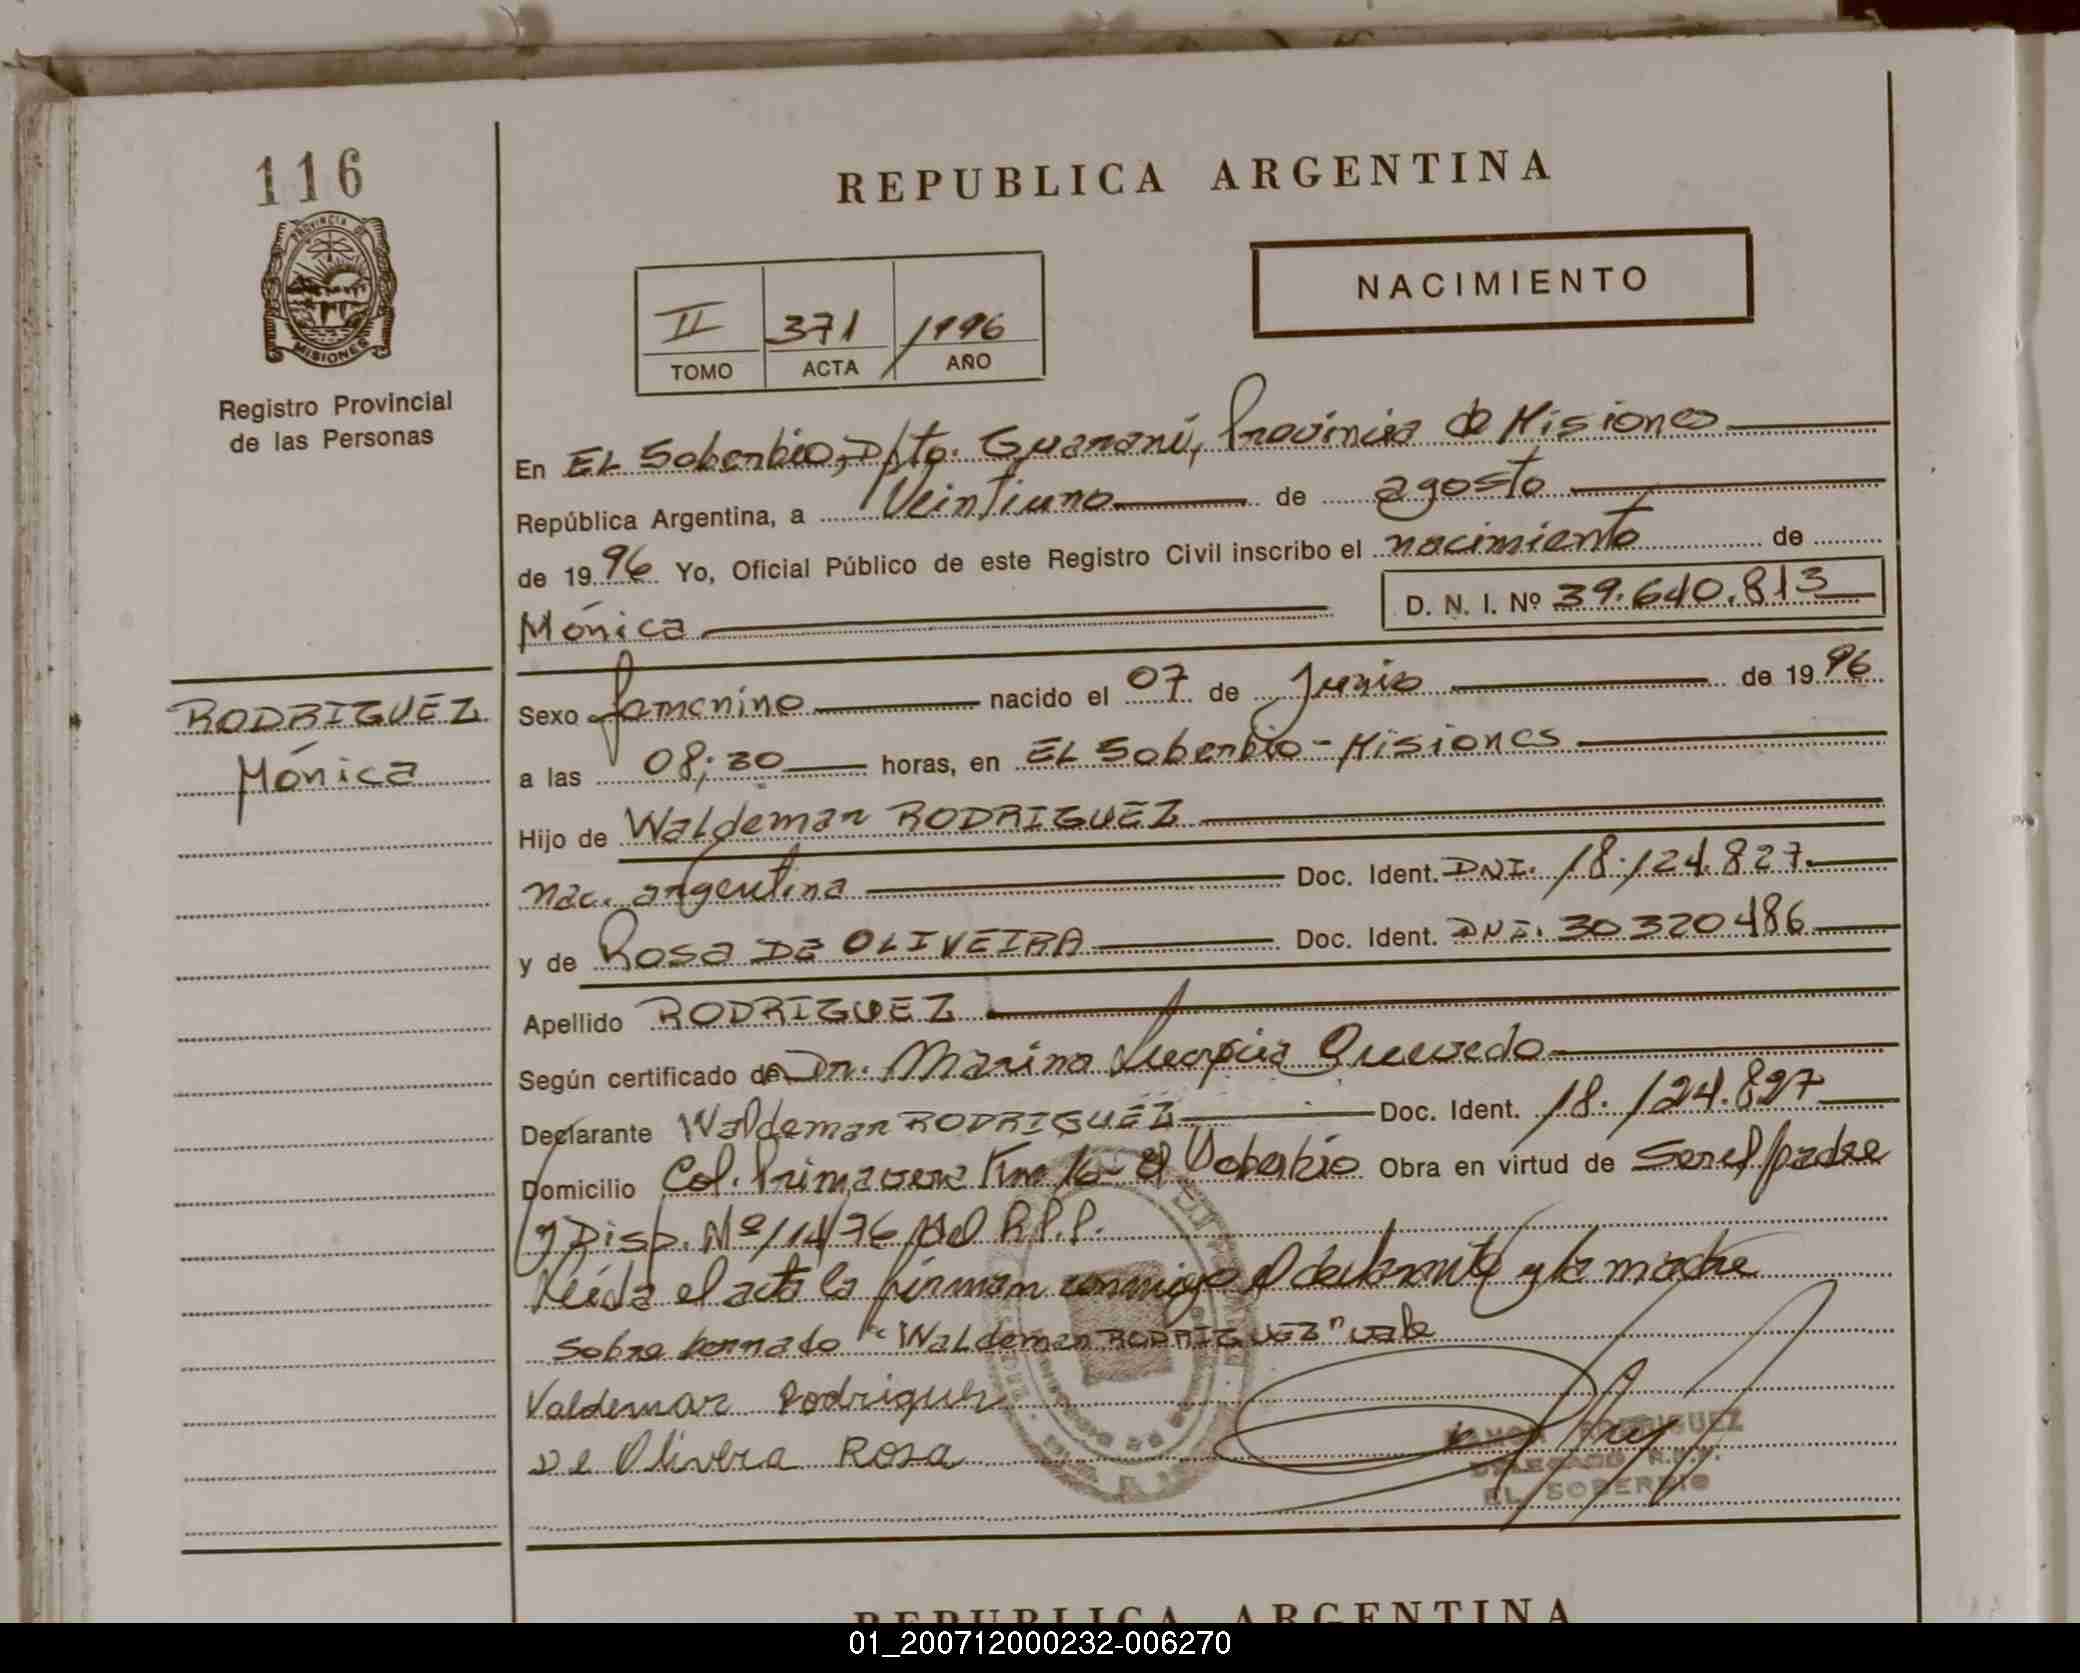 116
REPUBLICA ARGENTINA
PROVINCIA DE
MISIONES
NACIMIENTO
II 371 1996
TOMO ACTA AÑO
Registro Provincial
de las Personas
En EL Soberbio, Dpto. Guaraní, Provincia de Misiones
República Argentina, a Veintiuno de agosto
de 1996 Yo, Oficial Público de este Registro Civil inscribo el nacimiento de
Mónica D. N. I. Nº 39.640.813
RODRIGUEZ
Mónica
Sexo femenino nacido el 07 de Junio de 1996
a las 08;30 horas, en EL Soberbio - Misiones
Hijo de Waldemar RODRIGUEZ
nac. argentina Doc. Ident. DNI. 18.124.827
y de Rosa DE OLIVEIRA Doc. Ident. DNI. 30320486
Apellido RODRIGUEZ
Según certificado de Dr. Marina Quevedo
Declarante Waldemar RODRIGUEZ Doc. Ident. 18.124.827
Domicilio Col. Primavera Km 16 - El Soberbio Obra en virtud de Ser el padre
y Disp. Nº 114/76 del R.P.P.
Leída el acta la firman conmigo el declarante y la madre
Sobre borrado "Waldemar RODRIGUEZ" vale
Valdemar Rodriguez
De Olivera Rosa
RAMON RODRIGUEZ
DELEGADO R.P.P.
EL SOBERBIO
REPUBLICA ARGENTINA
01_200712000232-006270